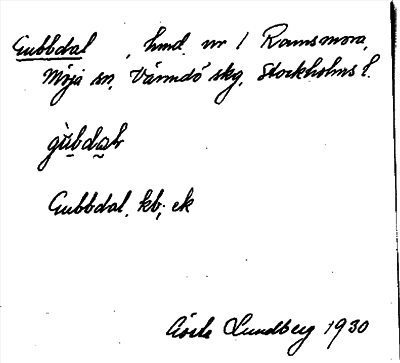 Gubbdal, hmd nr 1 Ramsmora,
Möja sn, Värmdö skg, Stockholms l.
gùbdaɫr
Gubbdal, kb; ek
Lundberg 1930